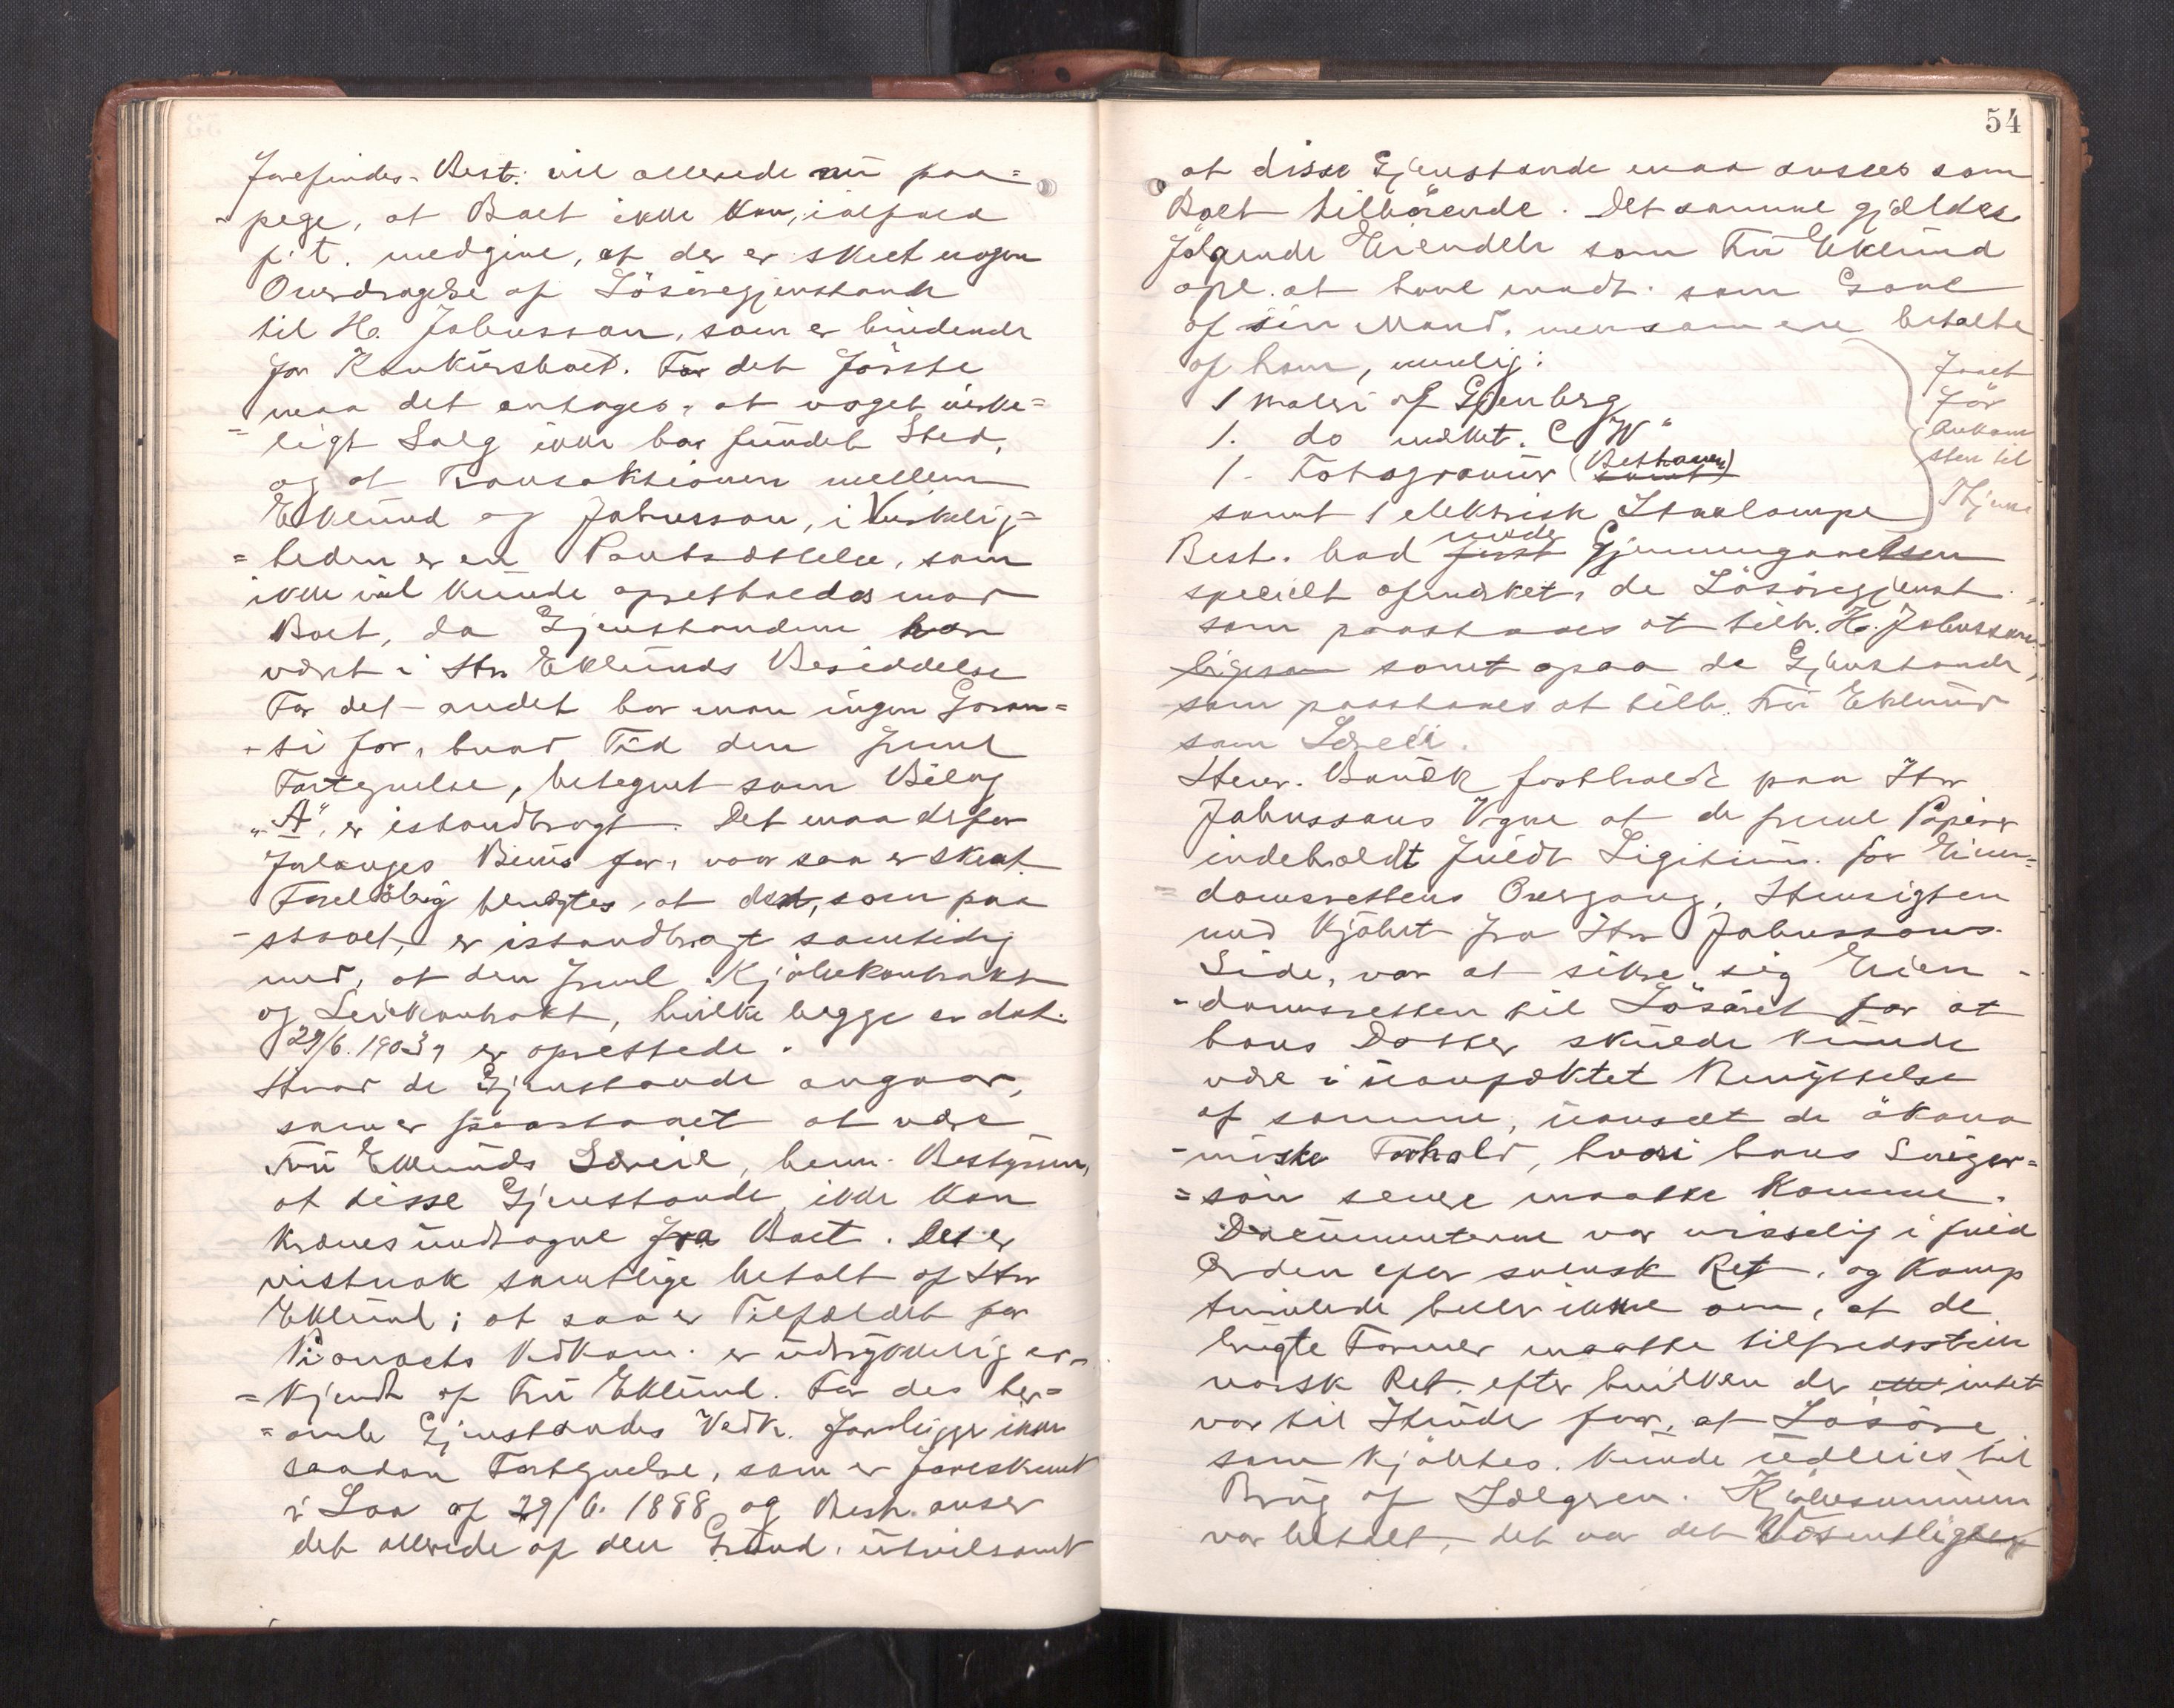 forefindes. Best. vil allerede nu paa=
=pege, at Boet ikke kan, ialfald
p. t. medgive, at der er skeet nogen
Overdragelse af Løsøregjenstande
til H. Johnsson, som er bindende
for Konkursboet. For det første
maa det antages, at noget virke=
=ligt Salg ikke har fundet Sted,
og at Transaktionen mellem
Eklund og Johnsson, i Virkelig=
=heden er en Pantsættelse, som
ikke vil kunde opretholdes mod
Boet, da Gjenstandene har
været i Hr. Eklunds Besiddelse
For det andet har man ingen Garan=
=ti for, hvad Tid den freml.
Fortegnelse, betegnet som Bilag
"A", er istandbragt. Det maa derfor
forlanges Bevis for, naar saa er skeat.
Foreløbig benægtes, at den, som paa
=staaet, er istandbragt samtidig
med, at den freml. Kjøbekontrakt
og Leiekontrakt, hvilke begge er dat.
29/6. 1903, er oprettede.
Hvad de Gjenstande angaar,
som er paastaaet at være
Fru Eklunds Særeie, bem. Bestyreren,
at disse Gjenstande ikke kan
kræves undtagne fra Boet. Det er
vistnok samtlige betalt af Hr.
Eklund; at saa er Tilfældet for
Pianoets Vedkom. er udtrykkelig er=
=kjendt af Fru Eklund. For des ber=
=ørte Gjenstandes Vedk. foreligger ikke
saadan Fortegnelse, som er foreskrevet
i Lov af 29/6. 1888 og Best. anser
det allerede af den Grund, utvilsomt
54
at disse Gjenstande maa ansees som
Boet tilhørende. Det samme gjælder
følgende Eiendele som Fru Eklund
opl. at have modt. som Gave
af sin Mand, men som ere betalte
af ham, nemlig:
1 Maleri af Gjenberg
1. do mærket. C "W"
1. Fotogravur (Bethoven)
samt 1 elektrisk Staalampe
Faaet
før
Ankom
sten til
Best. bad under Gjennemgaaelsen
specielt afmærket, de Løsøregjenst.
som paastaaes at tilh. H. Johnsson
ligesom samt ogsaa de Gjenstande,
som paastaaes at tilh. Fru Eklund
som Særeie.
Advokat fastholdt paa Hr.
Johnssons Vegne at de freml. Papirer
indeholdt fuldt Ligitim. for Eien=
=domsrettens Overgang, Hensigten
med Kjøbet fra Hr. Johnssons
Side, var at sikre sig Eien=
=domsretten til Løsøret for at
hans Datter skulde kunde
være i uanfæktet Benyttelse
af samme, uanseet de økono
=miske Forhold, hvori hans Sviger=
=søn senere maatte komme.
Documenterne var visselig i fuld
Orden efter svensk Ret, og Komp
tvivlede heller ikke om, at de
brugte Former maatte tilfredsstille
norsk Ret, efter hvilken der intet
var til Hinder for, at Løsøre
som kjøbtes, kunde udleies til
Brug af Sælgeren. Kjøbesummen
var betalt, det var det Væsentligste